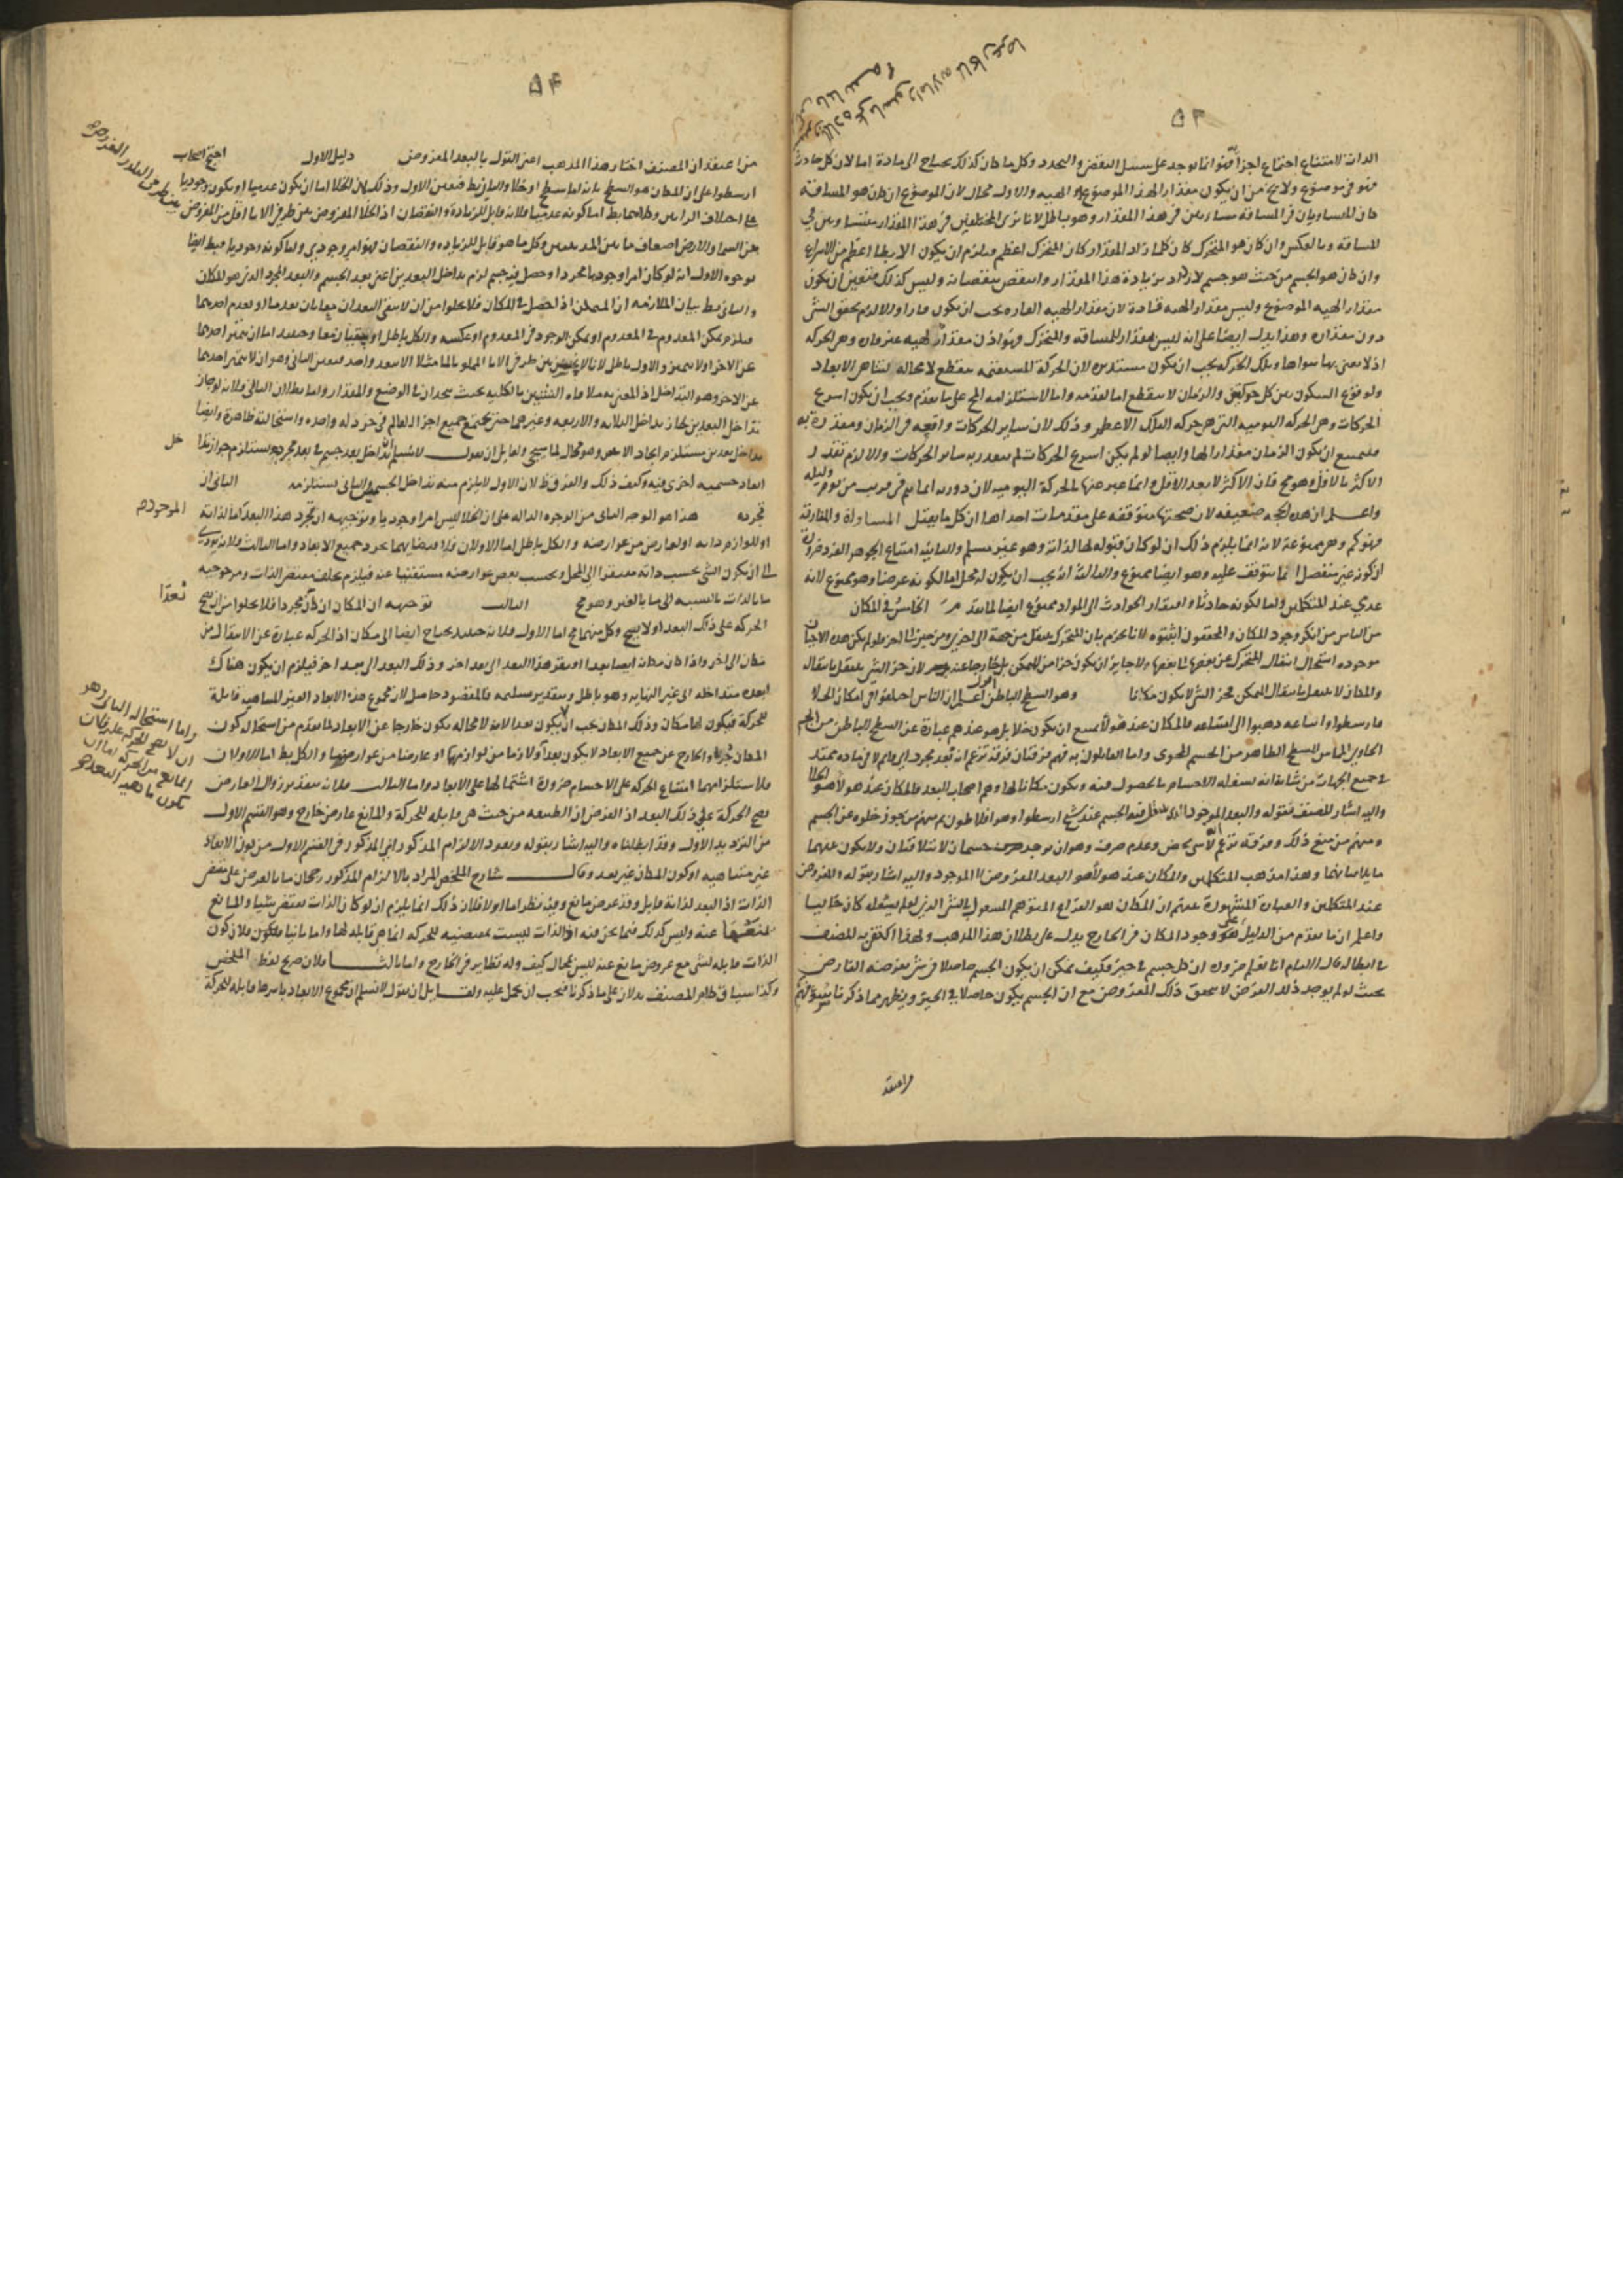 ٥٣
الذات لامتناع اجتماع اجزائه انما يوجد على سبيل التقضي والتجدد وكل ما كان كذلك يحتاج الى مادة اما لان كل حادث
فهو في موضوع ولا يخ من ان يكون مقدارا لهذا الموضوع او لهيئة والاول محال لان الموضوع ان كان هو المسافة
كان المتساويان في المسافة متساويين في هذا المقدار وهو باطل لانا نرى المختلفين في هذا المقدار متساويين في
المسافة وبالعكس وان كان هو المتحرك كان كلما زاد المقدار كان المتحرك اعظم فيلزم ان يكون الابطا اعظم من الاسرع
وان كان هو الجسم من حيث هو جسم لازداد بزيادة هذا المقدار وانتقص بنقصانه وليس كذلك فتعين ان يكون
مقدارا لهيئة الموضوع وليس مقدارا لهيئة قارة لان مقدار الهيئة القارة يجب ان يكون قارا والا لزم تحقق الشئ
دون مقداره وهذا يدل ايضا على انه ليس بمقدار للمسافة والمتحرك فهو اذن مقدار لهيئة غير قارة وهي الحركة
اذ لا نعني بها سواها وتلك الحركة يجب ان يكون مستديرة لان الحركة المستقيمة منقطع لا محالة لتناهي الابعاد
ولوقوع السكون بين كل حركتين والزمان لا ينقطع اما لقدمه واما لاستلزامه المح على ما تقدم ويجب ان يكون اسرع
الحركات وهي الحركة اليومية التي هي حركة الفلك الاعظم وذلك لان ساير الحركات واقعة في الزمان ومقدرة به
فيمتنع ان يكون الزمان مقدارا لها وايضا لو لم يكن اسرع الحركات لم يتقدر به ساير الحركات والا لزم تقدر
الاكثر بالاقل وهو مح فان الاكثر لا يعد الاقل وانما عبر عنها بالحركة اليومية لان دوره انما يتم في قريب من يوم وليلة
واعلم ان هذه الحجة ضعيفة لان صحتها متوقفة على مقدمات احداها ان كل ما يقبل المساواة والمفارقة
فهو كم وهي ممنوعة لانه انما يلزم ذلك ان لو كان قبوله لها لذاته وهو غير مسلم والثانية امتناع الجوهر الفرد فان
ان كونه غير منفصل انما يتوقف عليه وهو ايضا ممنوع والثالثة انه يجب ان يكون له محل اما لكونه عرضا وهو ممنوع لانه
عدمي عند المتكلمين واما لكونه حادثا وافتقار الحوادث الى المواد ممنوع ايضا لما تقدم الخامس في المكان
من الناس من انكر وجود المكان والمحققون اثبتوه لانا نجزم بان المتحرك ينتقل من جهة الى اخرى ومن حيز الى اخر ولو لم يكن هذه الاحياز
موجودة استحال انتقال المتحرك من بعضها الى بعضها ولا جايز ان يكون جزا من المتمكن بل خارجا عنه لان جزء الشئ ينتقل بانتقاله
والمكان لا ينتقل بانتقال المتمكن فجزء الشئ لا يكون مكانا وهو السطح الباطن اقول اعلم ان الناس اختلفوا في امكان الخلا
فارسطوا واتباعه ذهبوا الى امتناعه فالمكان عند هولا يمتنع ان يكون خلا بل هو عندهم عبارة عن السطح الباطن من الجسم
الحاوي المماس للسطح الظاهر من الجسم المحوى واما القايلون به فهم فرقتان فرقة تزعم انه بعد مجرد اي قايم لا في مادة ممتد
في جميع الجهات من شانه ان يشغله الاجسام بالحصول فيه ويكون مكانا لها وهم اصحاب البعد فالمكان عند هولا هو الخلا
واليه اشار المصنف بقوله والبعد الموجود الذي ينتقل فيه الجسم عند شيخ ارسطوا وهو افلاطون ثم منهم من يجوز خلوه عن الجسم
ومنهم من منع ذلك وفرقة تزعم انه لاشئ محض وعدم صرف وهو ان يوجد جسمان لا يتلاقيان ولا يكون بينهما
ما يلاقيانهما وهذا مذهب المتكلمين والمكان عند هولا هو البعد المفروض لا الموجود واليه اشار بقوله والمفروض
عند المتكلمين والعبارة المشهورة عنهم ان المكان هو الفراغ المتوهم المشغول بالشئ الذي لو لم يشغله كان خاليا
واعلم ان ما تقدم من الدليل على وجود المكان في الخارج يدل على بطلان هذا المذهب ولهذا اكتفى به المصنف
في ابطاله قال الامام انا نعلم ضرورة ان كل جسم في حيز وكيف يمكن ان يكون الجسم حاصلا في شئ يفرضه الفارض
بحيث لو لم يوجد ذلك الفرض لا يتحقق ذلك المفروض مع ان الجسم يكون حاصلا في الحيز ويظهر مما ذكرنا
من اعتقد
٥٤
من اعتقد ان المصنف اختار هذا المذهب اعني القول بالبعد المفروض دليل الاول احتج اصحاب
ارسطوا على ان المكان هو السطح بانه اما سطح او خلا والثاني بط فتعين الاول وذلك لان الخلا اما ان يكون عدميا او يكون وجوديا
على اختلاف الرايين وكلاهما بط اما كونه عدميا فلانه قابل للزيادة والنقصان اذ الخلا المفروض بين طرفي الانا اقل من المفروض
بين السما والارض اضعاف ما بين المدينتين وكل ما هو قابل للزيادة والنقصان فهو امر وجودي واما كونه وجوديا فبط ايضا
لوجوه الاول انه لو كان امرا وجوديا مجردا وحصل فيه جسم لزم تداخل البعدين اعني بعد الجسم والبعد المجرد الذي هو المكان
والتالي بط بيان الملازمة ان المتمكن اذا حصل في المكان فلا يخلوا من ان لا يبقى البعدان معا بان يعدما او يعدم احدهما
فيلزم تمكن المعدوم في المعدوم او تمكن الموجود في المعدوم او عكسه والكل باطل او يبقيان معا وحينئذ اما ان يتميز احدهما
عن الاخر او لا يتميز والاول باطل لانا لا نحس بين طرفي الانا المملو بالماء مثلا الا ببعد واحد فتعين الثاني وهو ان لا يتميز احدهما
عن الاخر وهو التداخل اذ المعنى به ملاقاة الشيئين بالكلية بحيث يتحدان في الوضع والمقدار واما بطلان التالي فلانه لو جاز
تداخل البعدين لجاز تداخل الثلاثة والاربعة وغيرهما حتى يجتمع جميع اجزا العالم في خردلة واحدة واستحالته ظاهرة وايضا
تداخل بعدين يستلزم اتحاد الاثنين وهو محال لما سيجى ولقايل ان يقول لا نسلم ان تداخل بعد جسم في بعد مجرد يستلزم جواز تداخل
ابعاد جسمية اخرى فيه وكيف ذلك والفرق ظ لان الاول لا يلزم منه تداخل الجسمين والثاني يستلزمه الثاني ان
تجرده هذا هو الوجه الثاني من الوجوه الدالة على ان الخلا ليس امرا وجوديا وتوجيهه ان تجرد هذا البعد اما لذاته
او للوازم ذاته او لعارض من عوارضه والكل باطل اما الاولان فلاقتضايهما تجرد جميع الابعاد واما الثالث فلانه يودي
الى ان يكون الشئ بحسب ذاته مفتقرا الى المحل وبحسب بعض عوارضه مستغنيا عنه فيلزم تخلف مقتضى الذات ومرجوحية
ما بالذات بالنسبة الى ما بالغير وهو مح الثالث توجيهه ان المكان ان كان بعدا مجردا فلا يخلوا من ان يصح
الحركة على ذلك البعد او لا يصح وكل منهما مح اما الاول فلانه حينئذ يحتاج ايضا الى مكان اذ الحركة عبارة عن الانتقال من
مكان الى اخر واذا كان مكانه ايضا بعدا افتقر هذا البعد الى بعد اخر وذلك البعد الى بعد اخر فيلزم ان يكون هناك
ابعاد متداخلة الى غير النهاية وهو باطل وبتقدير تسليمه فالمقصود حاصل لان مجموع هذه الابعاد الغير المتناهية قابلة
للحركة فيكون لها مكان وذلك المكان يجب ان لا يكون بعدا لانه لا محالة يكون خارجا عن الابعاد لما تقدم من استحالة كون
المكان جزءا والخارج عن جميع الابعاد لا يكون بعدا ولازما من لوازمها او عارضا من عوارضها والكل بط اما الاولان
فلاستلزامهما امتناع الحركة على الاجسام ضرورة اشتمالها على الابعاد واما الثالث فلانه بتقدير زوال العارض
يصح الحركة على ذلك البعد اذ الفرض ان الطبيعة من حيث هي قابلة للحركة والمانع عارض خارج وهو القسم الاول
من الترديد الاول وقد ابطلناه واليه اشار بقوله ويعود الالزام المذكور اي المذكور في القسم الاول من كون الابعاد
غير متناهية او كون المكان غير بعد وقال شارح الملخص المراد بالالزام المذكور رجحان ما بالعرض على مقتضى
الذات اذ البعد لذاته قابل وقد عرض مانع وفيه نظر اما اولا فلان ذلك انما يلزم ان لو كان الذات يقتضى شيئا والمانع
يمنعها عنه وليس كذلك فيما نحن فيه اذ الذات ليست بمقتضية للحركة انما هي قابلة لها واما ثانيا فلان كون
الذات قابلة لشئ مع عروض مانع عنه ليس بمحال كيف وله نظاير في الخارج واما ثالثا فلان صريح لفظ الملخص
وكذا سياق ظاهر المصنف يدلان على ما ذكرنا فيجب ان يحمل عليه ولقايل ان يقول لا نسلم ان مجموع الابعاد باسرها قابلة للحركة
الموجود
بعدا
واما استحالة الثاني وهو
ان لا يصح الحركة عليه فلان
المانع من الحركة اما ان
يكون ماهية البعد